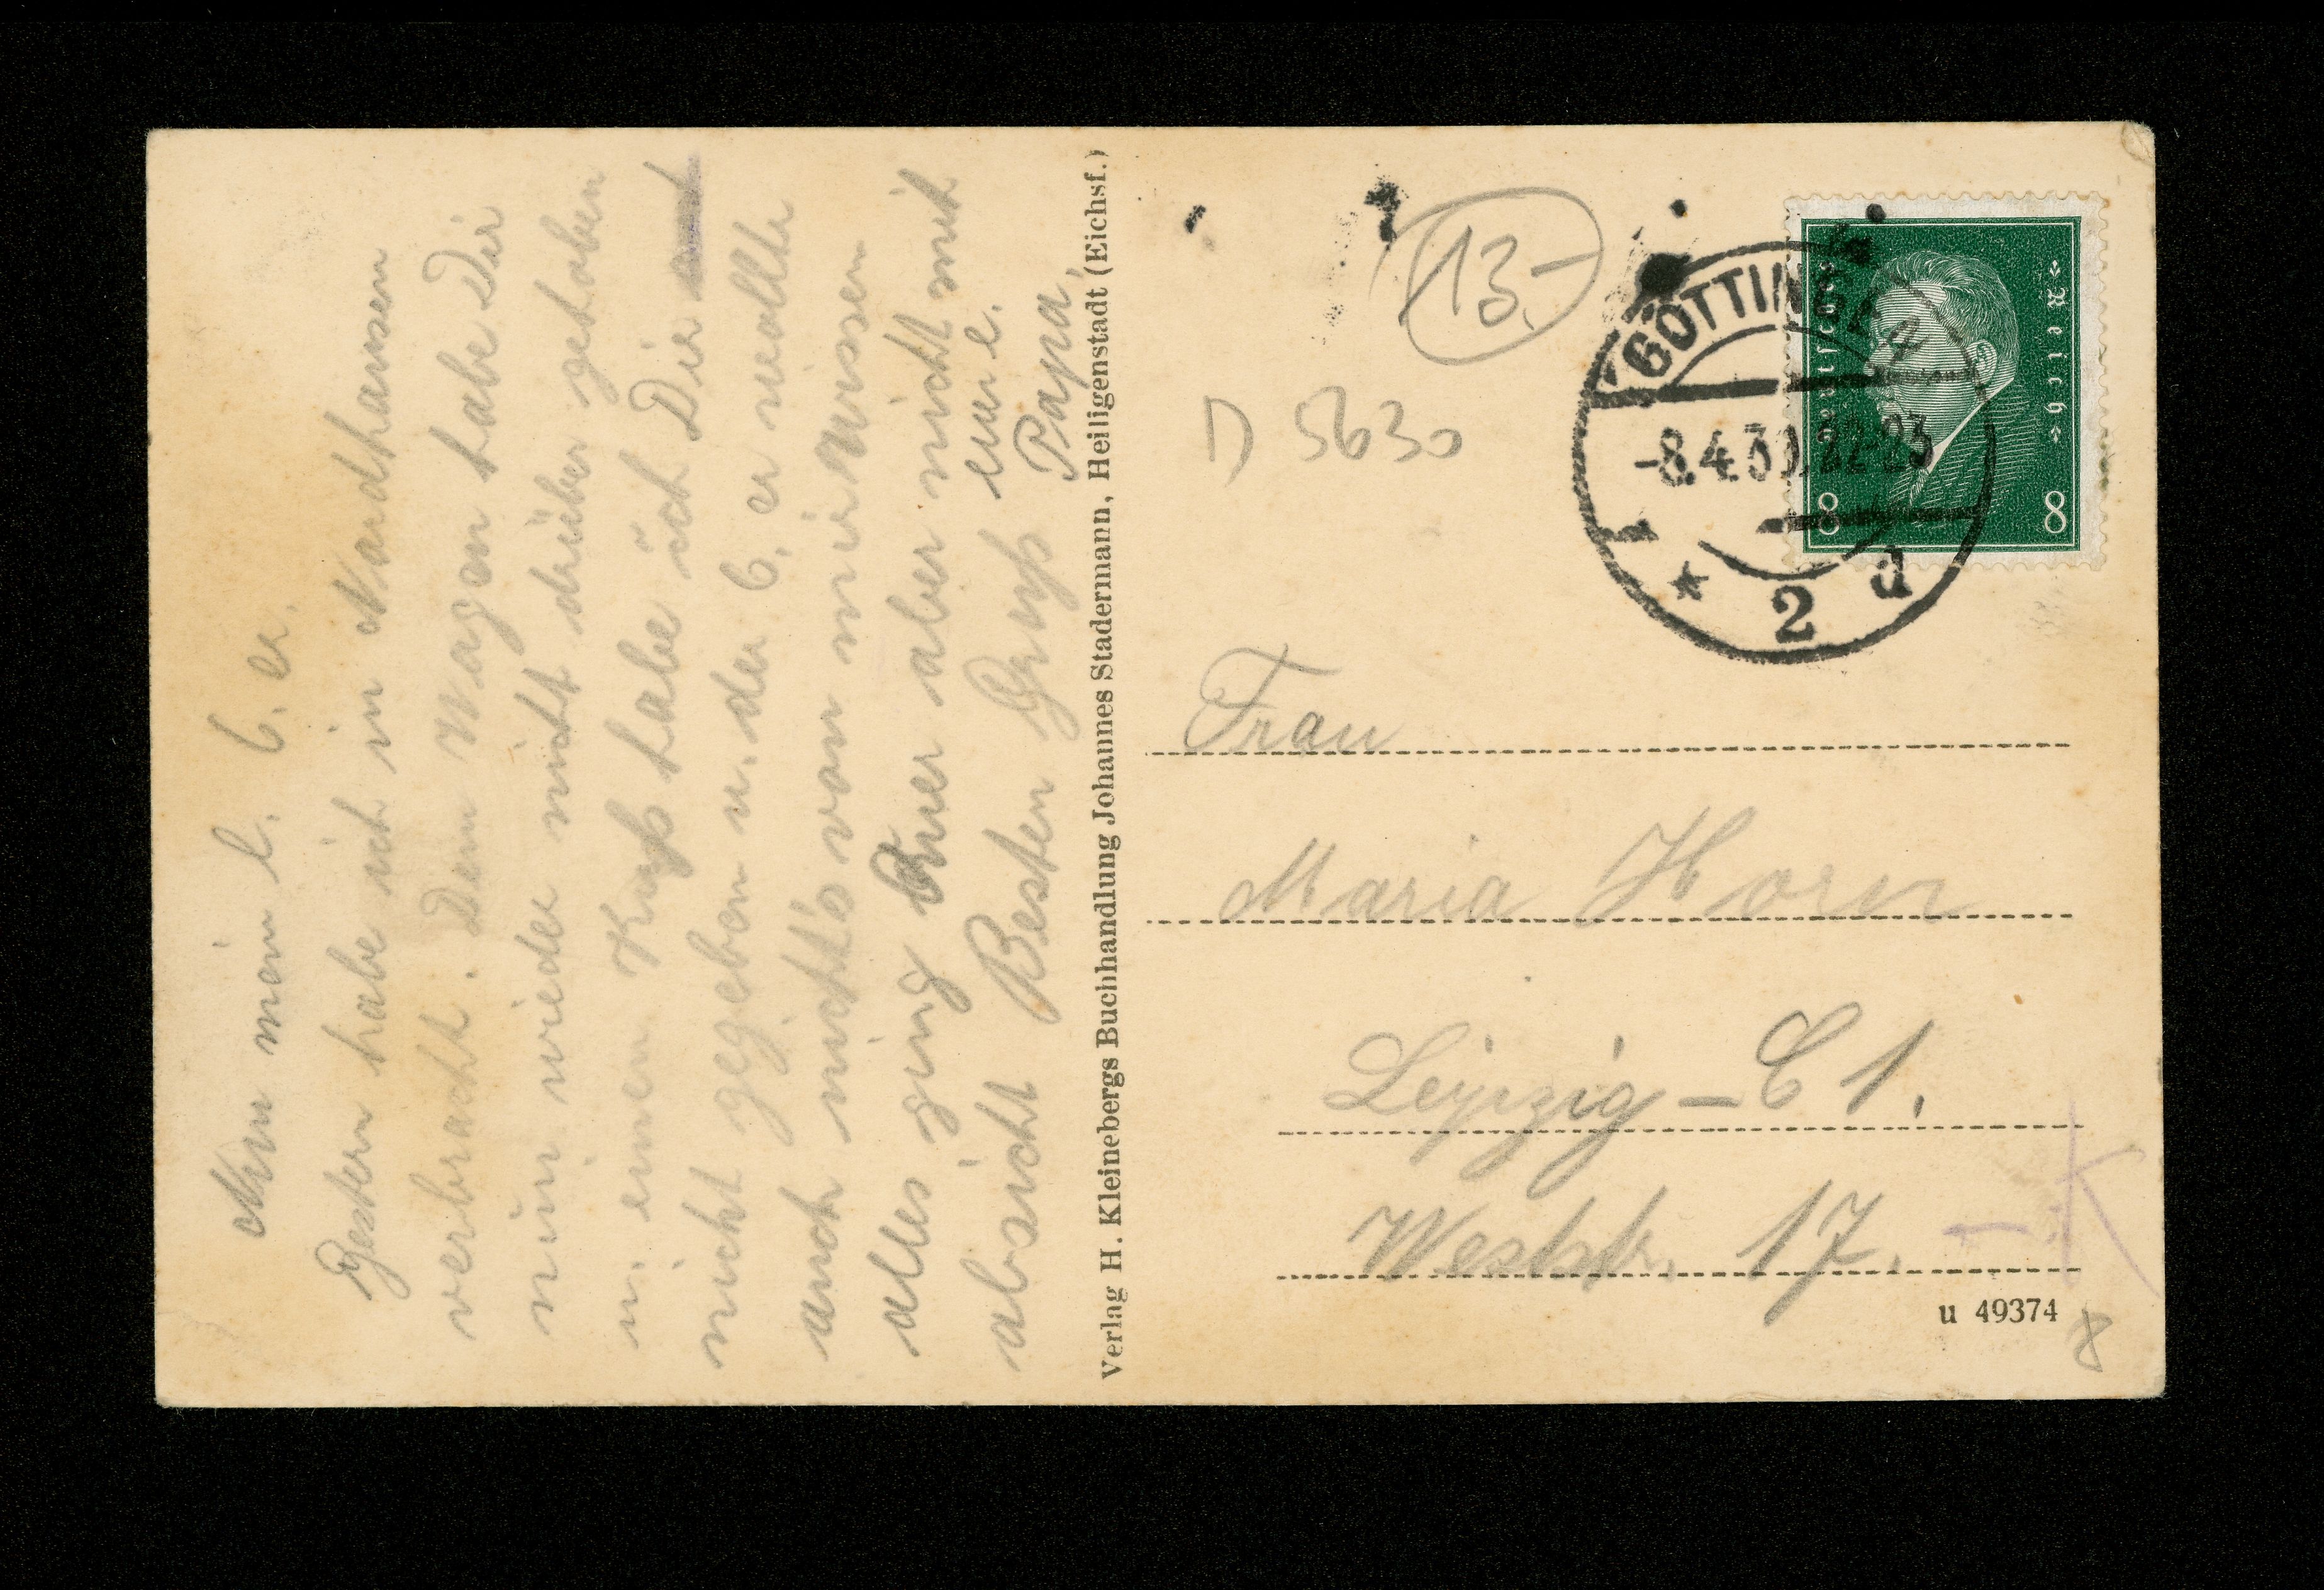 Nun mein l. C. er.
Gestern habe ich in Nordhausen
verbracht. Dein Magen habe Dir
nun wieder nicht drüber gehoben
u. einen Kuß habe ich Dir
nicht gegeben u. der C. er wollte
auch nicht's von mir wissen
alles ging aber nicht mit
absicht Besten Gruß eur e.
Papa,
Verlag H. Kleinebergs Buchhandlung Johannes Stadermann, Heiligenstadt (Eichsf.)
13.-
D 5630
GÖTTINGEN
-8.4.30.22-23
* 2 d
Deutsches Reich
8 8
Frau
Maria Horn
Leipzig-C 1.
Weststr. 17.
-K
u 49374
8